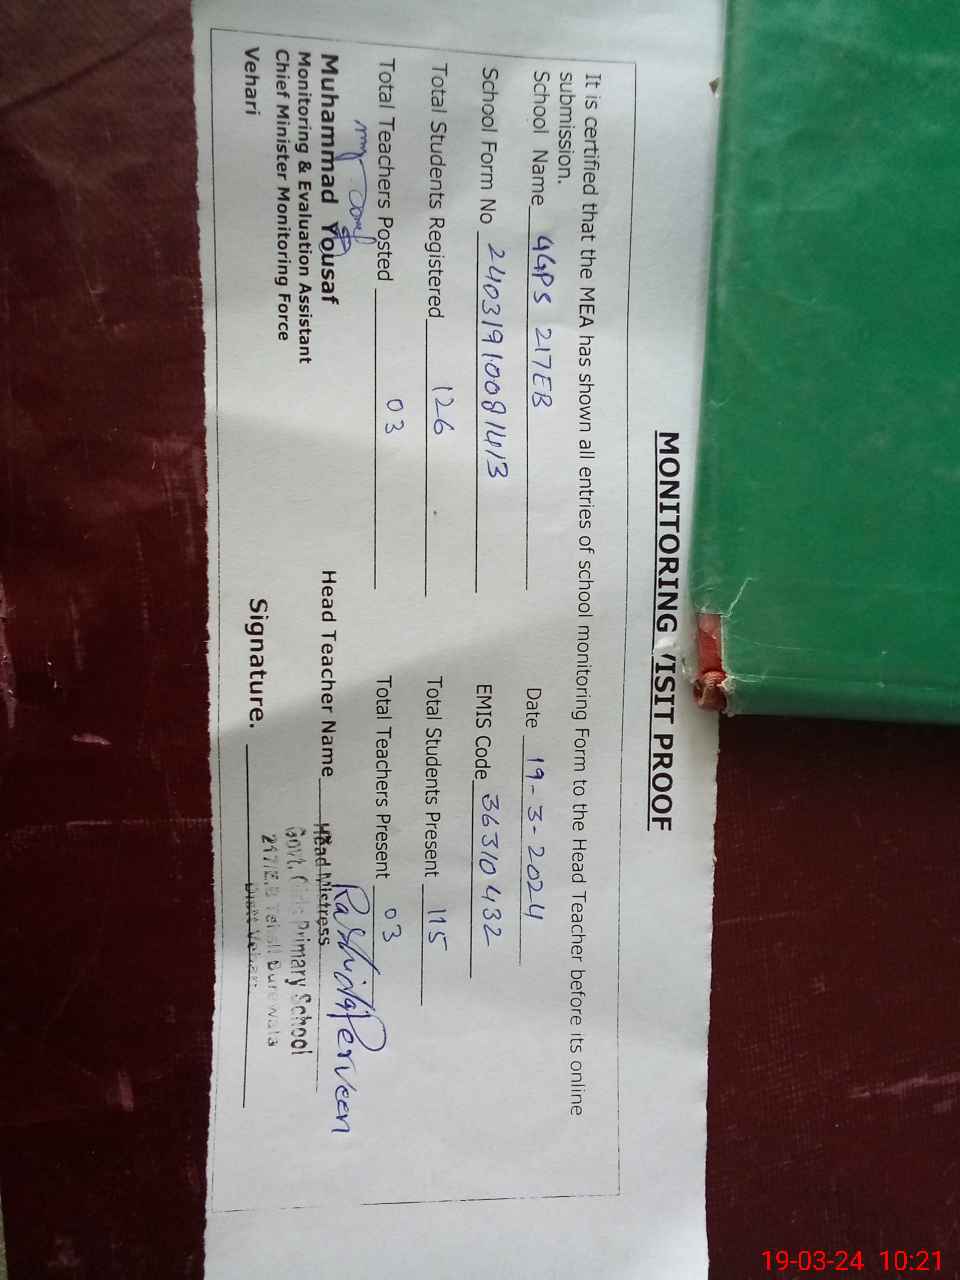 MONITORING VISIT PROOF
It is certified that the MEA has shown all entries of school monitoring Form to the Head Teacher before its online
submission.
School Name GGPS 217EB Date 19-3-2024
School Form No 24031910081413 EMIS Code 36310432
Total Students Registered 126 Total Students Present 115
Total Teachers Posted 03 Total Teachers Present 03
Rashida Perveen
Muhammad Yousaf Head Teacher Name Head Mistress
Monitoring & Evaluation Assistant Govt. Girls Primary School
Chief Minister Monitoring Force 217/E.B Tehsil Burewala
Vehari Signature. Distt Vehari
19-03-24 10:21